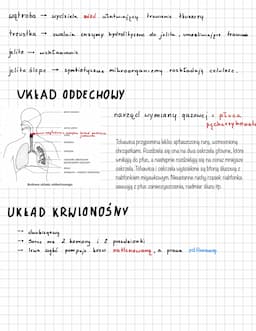 wątroba → wydziela żółć ułatwiający trawienie tłuszczy
trzustka → uwalnia enzymy hydrolityczne do jelita, umożliwiające
jelito → wchłanianie
jelito ślepe → symbiotyczne mikroorganizmy rozkładają celulozę.
UKŁAD ODDECHOWY
narząd wymiany gazowej = płuca
pęcherzykowate
Tchawica przypomina lekko spłaszczoną rurę, wzmocnioną
chrząstkami. Rozdziela się ona na dwa oskrzela główne, które
wnikają do płuc, a następnie rozdzielają się na coraz mniejsze
oskrzela. Tchawica i oskrzela wyścielone są błoną śluzową z
nabłonkiem migawkowym. Nieustanne ruchy rzęsek nabłonka
usuwają z płuc zanieczyszczenia, nadmiar śluzu itp.
Budowa układu oddechowego.
UKŁAD KRWIONOŚNY
→ dwubiegowy
→ Serce ma 2 komory i 2 przedsionki
→ lewa część pompuje krew natlenowaną, a prawa odtlenowaną.